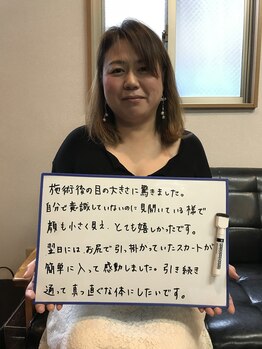 施術後の目の大きさに驚きました。
自分で意識していないのに見開いている様で
顔も小さく見え、とても嬉しかったです。
翌日には、お尻で引っ掛かっていたスカートが
簡単に入って感動しました。引き続き
通って真っ直ぐな体にしたいです。